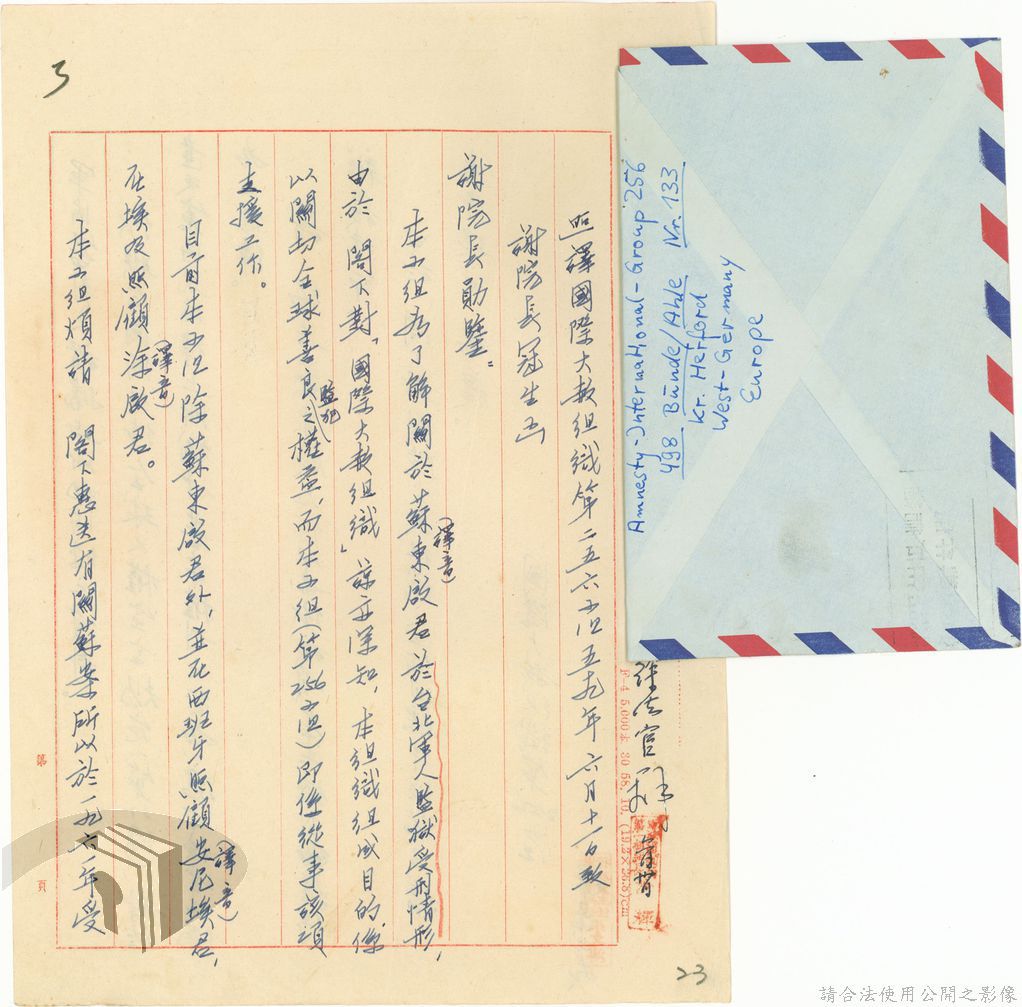 3
照譯國際大赦組織第二五六小組五九年六月十一日致
謝院長冠生函
謝院長勛鑒：
本小組為了解關於蘇東啟(譯音)君於台北軍人監獄受刑情形，
由於 閣下對「國際大赦組織」諒亦深知，本組織組成目的，係
以關切全球善良之監犯權益，而本小組(第256小組)即係從事該項
支援工作。
目前本小組除蘇東啟君外，並在西班牙照顧安尼埃(譯音)君，
在埃及照顧涂啟(譯音)君。
本小組煩請 閣下惠送有關蘇案所以於一九六一年受
第 頁
23
F-4 5,000本 30 58. 10. (19.2×26.8)cm
Amnesty-International-Group 256
498 Bünde/Ahle Nr. 133
Kr. Herford
West-Germany
Europe
請合法使用公開之影像